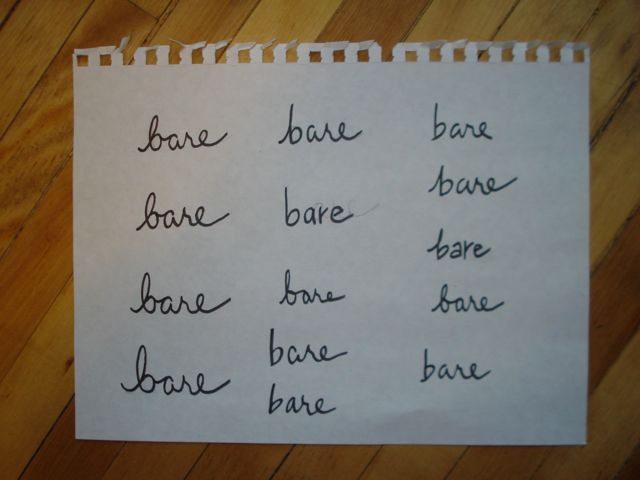 bare bare bare
bare
bare bare
bare
bare bare bare
bare bare bare
bare